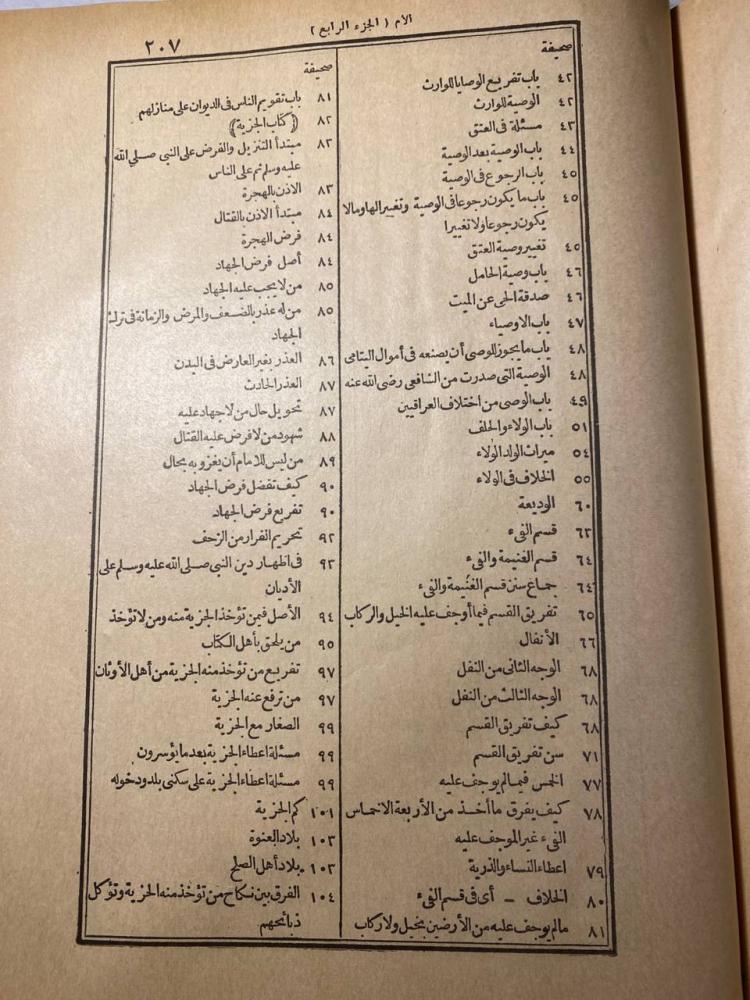 الأم (الجزء الرابع)
٢٠٧
صحيفة
٤٢ باب تفريع الوصايا للوارث
٤٢ الوصية للوارث
٤٣ مسئلة فى العتق
٤٤ باب الوصية بعد الوصية
٤٥ باب الرجوع فى الوصية
٤٥ باب ما يكون رجوعا فى الوصية وتغييرا لها وما لا
يكون رجوعا ولا تغييرا
٤٥ تغيير وصية العتق
٤٦ باب وصية الحامل
٤٦ صدقة الحى عن الميت
٤٧ باب الاوصياء
٤٨ باب ما يجوز للوصى أن يصنعه فى أموال اليتامى
٤٨ الوصية التى صدرت من الشافعى رضى الله عنه
٤٩ باب الوصى من اختلاف العراقيين
٥١ باب الولاء والحلف
٥٤ ميراث الولد الولاء
٥٥ الخلاف فى الولاء
٦٠ الوديعة
٦٣ قسم الفىء
٦٤ قسم الغنيمة والفىء
٦٤ جماع سنن قسم الغنيمة والفىء
٦٥ تفريق القسم فيما أوجف عليه الخيل والركاب
٦٦ الأنفال
٦٨ الوجه الثانى من النفل
٦٨ الوجه الثالث من النفل
٦٨ كيف تفريق القسم
٧١ سن تفريق القسم
٧٧ الخمس فيما لم يوجف عليه
٧٨ كيف يفرق ما أخذ من الأربعة الاخماس
الفىء غير الموجف عليه
٧٩ اعطاء النساء والذرية
٨٠ الخلاف - أى فى قسم الفىء
٨١ مالم يوجف عليه من الأرضين بخيل ولا ركاب
صحيفة
٨١ باب تقويم الناس فى الديوان على منازلهم
٨٢ (كتاب الجزية)
٨٢ مبتدأ التنزيل والفرض على النبى صلى الله
عليه وسلم ثم على الناس
٨٣ الاذن بالهجرة
٨٤ مبتدأ الاذن بالقتال
٨٤ فرض الهجرة
٨٤ أصل فرض الجهاد
٨٥ من لا يجب عليه الجهاد
٨٥ من له عذر بالضعف والمرض والزمانة فى ترك
الجهاد
٨٦ العذر بغير العارض فى البدن
٨٧ العذر الحادث
٨٧ تحويل حال من لا جهاد عليه
٨٨ شهود من لا فرض عليه القتال
٨٩ من ليس للامام أن يغزو به بحال
٩٠ كيف تفضل فرض الجهاد
٩٠ تفريع فرض الجهاد
٩٢ تحريم الفرار من الزحف
٩٣ فى اظهار دين النبى صلى الله عليه وسلم على
الأديان
٩٤ الأصل فيمن تؤخذ الجزية منه ومن لا تؤخذ
٩٥ من يلحق بأهل الكتاب
٩٧ تفريع من تؤخذ منه الجزية من أهل الأوثان
٩٧ من ترفع عنه الجزية
٩٩ الصغار مع الجزية
٩٩ مسئلة اعطاء الجزية بعد ما يؤسرون
٩٩ مسئلة اعطاء الجزية على سكنى بلد ودخوله
١٠١ كم الجزية
١٠٣ بلاد العنوة
١٠٣ بلاد أهل الصلح
١٠٤ الفرق بين نكاح من تؤخذ منه الجزية وتؤكل
ذبائحهم